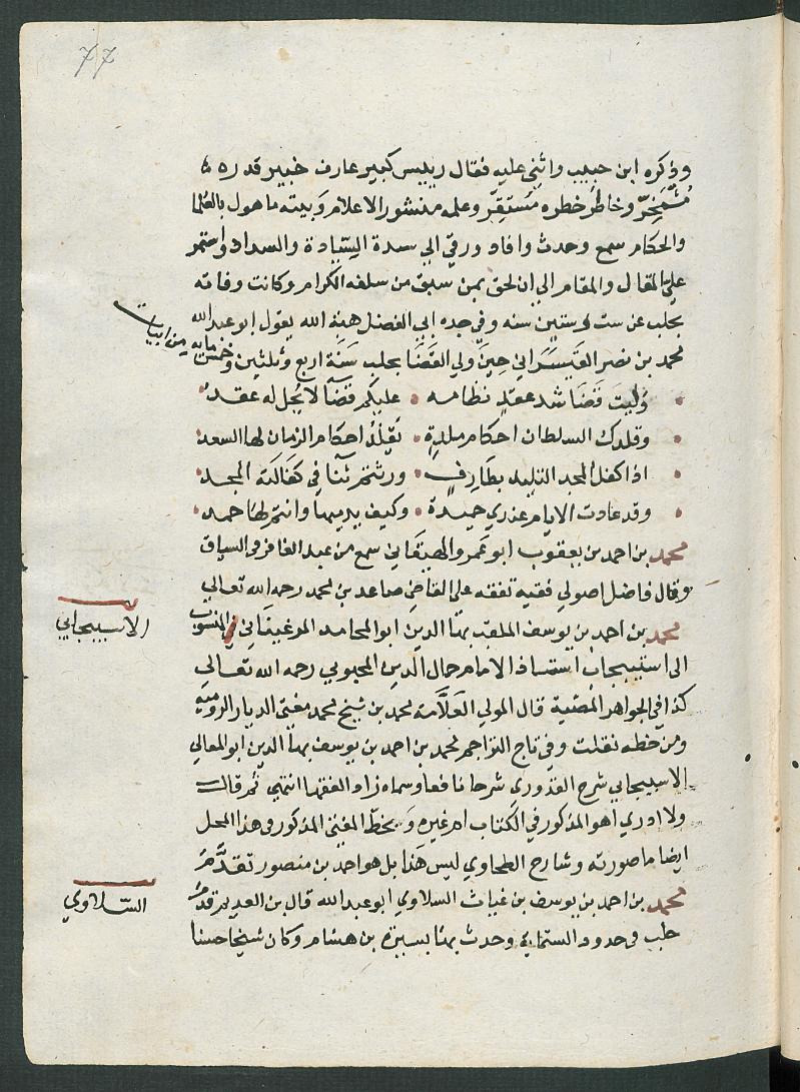 77
وذكره ابن حبيب واثنى عليه فقال رييس كبير عارف خبير قدره
مُشْمَخِرّ وخاطر خطره مُسْتَقِرّ وعلمه منشور الاعلام وبيته ماهول بالعلما
والحكام سمع وحدث وافاد ورقي الى سدة السيادة والسداد واستمر
على المقال والمقام الى ان لحق بمن سبق من سلفه الكرام وكانت وفاته
بحلب عن ست وستين سنه وفي جده ابي الفضل هبة الله يقول ابو عبد الله
محمد بن نصر القيسراني حين ولي القضا بحلب سنة اربع وثلثين وخمس مايه من ابيات
وليت قضا شد عقد نظامه • عليكم قضا لا يحل له عقد
وقلدك السلطان احكام ملدة • تقلد احكام الزمان لها السعد
اذا كفل المجد التليد بطارف • ورشتم ثنا في كفالته المجد
وقد عادت الايام عندي حميدة • وكيف يذيمها وانتم لها حمد
محمد بن احمد بن يعقوب ابو عمرو الصيغاني سمع من عبد الغافر والسياق
وقال فاضل اصولي فقيه تفقه على القاضي صاعد بن محمد رحمه الله تعالى
محمد بن احمد بن يوسف الملقب بهآ الدين ابو المحامد المرغيناني المنسوب
الى اسبيجاب استاذ الامام جمال الدين المحبوبي رحمه الله تعالى
كذا في الجواهر المضية قال المولى العلامة محمد بن شيخ محمد مفتي الديار الرومية
ومن خطه نقلت وفي تاج التراجم محمد بن احمد بن يوسف بهآ الدين ابو المعالي
الاسبيجابي شرح القدوري شرحا نافعا وسماه زاد الفقها انتهى ثم قال
ولا ادري اهو المذكور في الكتاب ام غيره وبخط المفتي المذكور في هذا المحل
ايضا ما صورته وشارح الطحاوي ليس هذا بل هو احمد بن منصور تقدم
محمد بن احمد بن يوسف بن غياث السلاوي ابو عبد الله قال بن العديم قدم
حلب في حدود الستماية وحدث بها بسيرة بن هشام وكان شيخا حسنا
الاسبيجابي
السلاوي